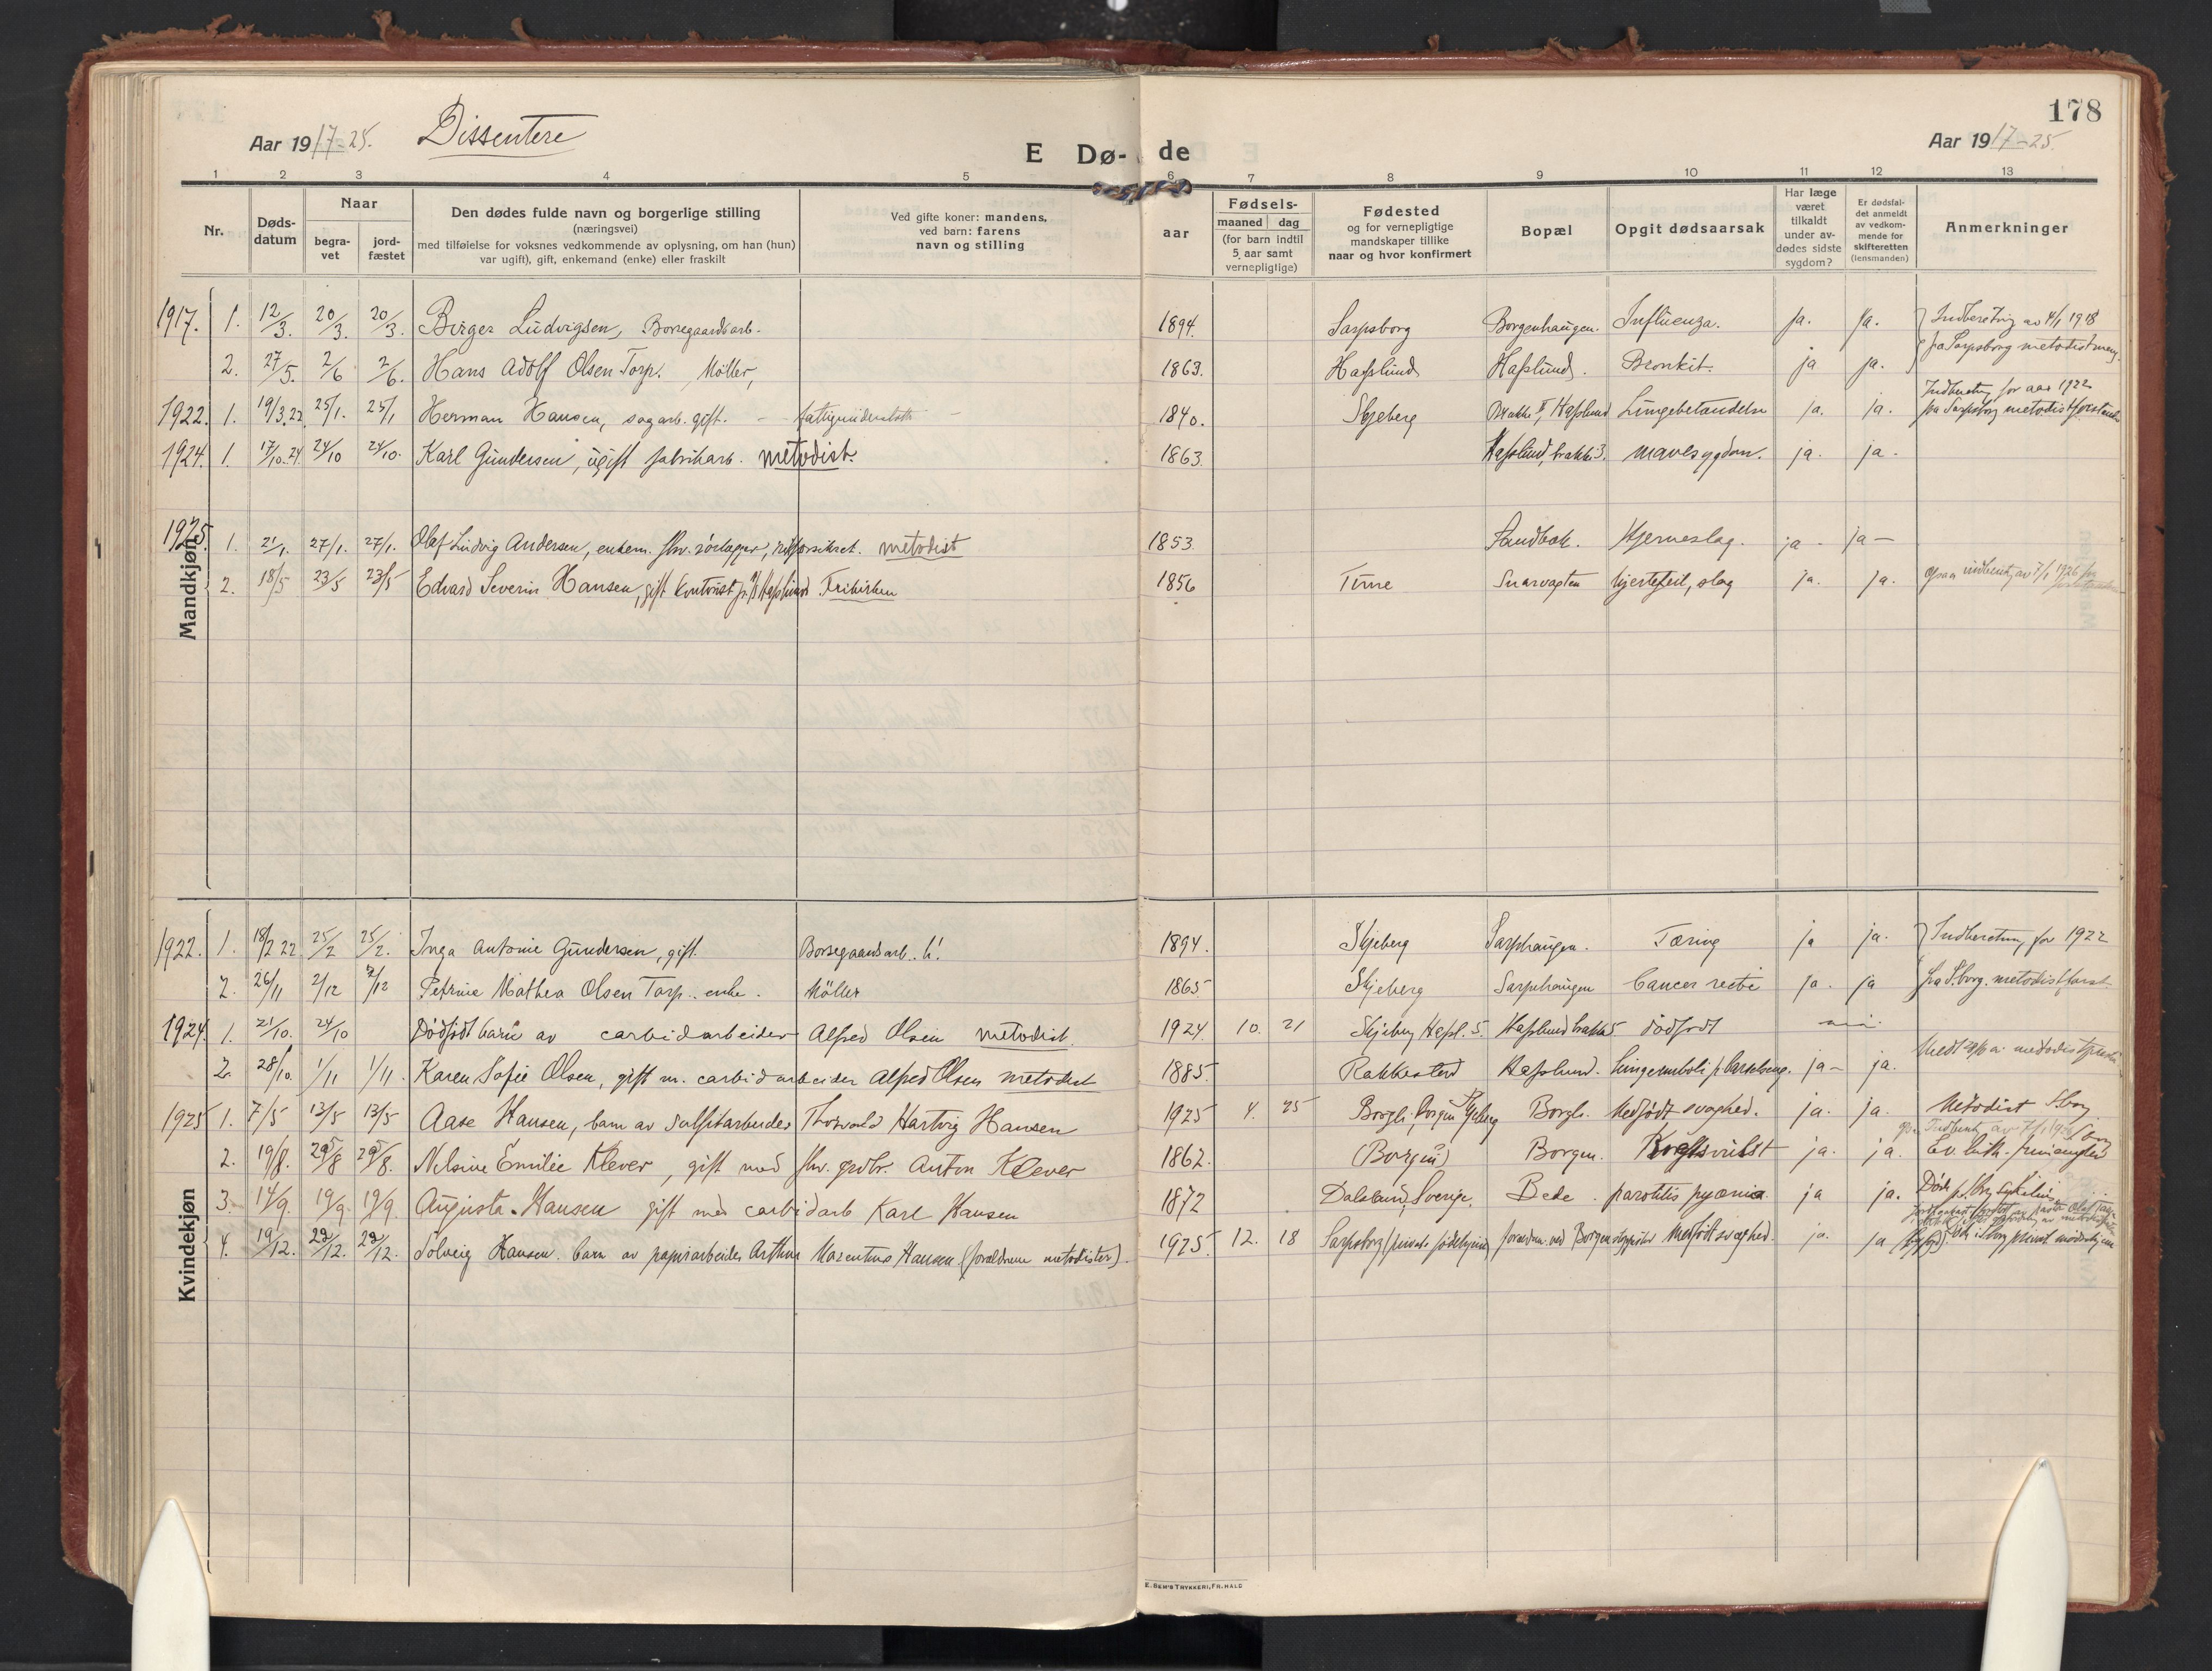 178
Aar 1917-25. Dissentere
E Dø- de
Aar 1917-25.
1 2 3 4 5 6 7 8 9 10 11 12 13
Nr.
Døds-
datum
Naar
begra-
vet
jord-
fæstet
Den dødes fulde navn og borgerlige stilling
(næringsvei)
med tilføielse for voksnes vedkommende av oplysning, om han (hun)
var ugift), gift, enkemand (enke) eller fraskilt
Ved gifte koner: mandens,
ved barn: farens
navn og stilling
Fødsels-
aar
maaned dag
(for barn indtil
5 aar samt
vernepligtige)
Fødested
og for vernepligtige
mandskaper tillike
naar og hvor konfirmert
Bopæl
Opgit dødsaarsak
Har læge
været
tilkaldt
under av-
dødes sidste
sygdom?
Er dødsfal-
det anmeldt
av vedkom-
mende for
skifteretten
(lensmanden)
Anmerkninger
Mandkjøn
1917. 1. 12/3. 20/3. 20/3. Birger Ludvigsen, Borregaardsarb. 1894. Sarpsborg Borgenhaugen. Influenza. Ja. Ja. Indberetning av 4/1 1918
2. 27/5. 2/6 2/6. Hans Adolf Olsen Torp. Møller, 1863. Hafslund Hafslund. Bronkit. ja ja. fra Sarpsborg metodistmen.
1922. 1. 19/3.22. 25/1. 25/1 Herman Hansen, sagarb. gift. 1840. Skjeberg Brakke II, Hafslund Lungebetændelse ja. ja. for aar 1922
fra Sarpsborg
1924. 1. 17/10.24 24/10 24/10. Karl Gundersen, ugift fabrikarb. metodist. 1863. Hafslund, brakke 3. mavesygdom. ja. ja.
1925. 1. 21/1. 27/1. 27/1. Olaf Ludvig Andersen, enkem. metodist 1853. Sandbak. Hjerneslag. ja - ja -
2. 18/5 23/5 23/5 Edvard Severin Hansen, gift Kontorist Hafslund Frikirken 1856 Tune Snarvagten hjertefeil, slag ja. ja.
Kvindekjøn
1922. 1. 18/2 22 25/2 25/2. Inga Antonie Gundersen, gift. Borregaardsarb. 1894. Skjeberg Sarphaugen. Tæring ja ja. Indberetning for 1922
2. 26/11 2/12 2/12 Petrine Mathea Olsen Torp. enke. Møller 1865 Skjeberg Sarphaugen Cancer recti ja. ja fra S.borg. metodistforst.
1924. 1. 21/10. 24/10 Dødfødt barn av carbidarbeider Alfred Olsen metodist. 1924. 10. 21 Skjeberg Hafslund brakke 5 dødfødt
2. 28/10. 1/11 1/11. Karen Sofie Olsen, gift m. carbidarbeider Alfred Olsen metodist 1885. Rakkestad Hafslund. Lungeemboli p. barselseng. ja - ja.
1925 1. 7/5 13/5 13/5 Aase Hansen, barn av sulfitarbeider Thorvald Hartvig Hansen 1925 4. 25 Borgen Skjeberg Medfødt svaghed. ja. ja. Metodist S.borg
2. 19/8. 25/8 25/8. Nelsine Emilie Klever, gift med fhv. grdbr. Anton Klever 1862. (Borgen) Borgen. ja. ja. Ev. luth. frimenighed
3. 14/9. 19/9. 19/9 Augusta Hansen gift med carbidarb Karl Hansen 1872 Dalsland, Sverige. Bede. parotitis pyæmia ja ja.
4. 19/12. 22/12. 22/12. Solveig Hansen. barn av papirarbeider Arthur Marentius Hansen (forældrene metodister). 1925. 12. 18 Sarpsborg Medfødt svaghed. ja. ja
E. SEM'S TRYKKERI, FR.HALD